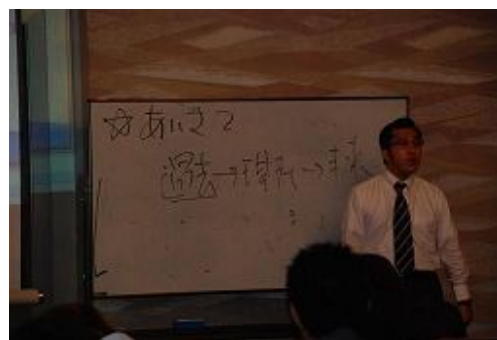 ☆あいさつ
過去→現在→未来